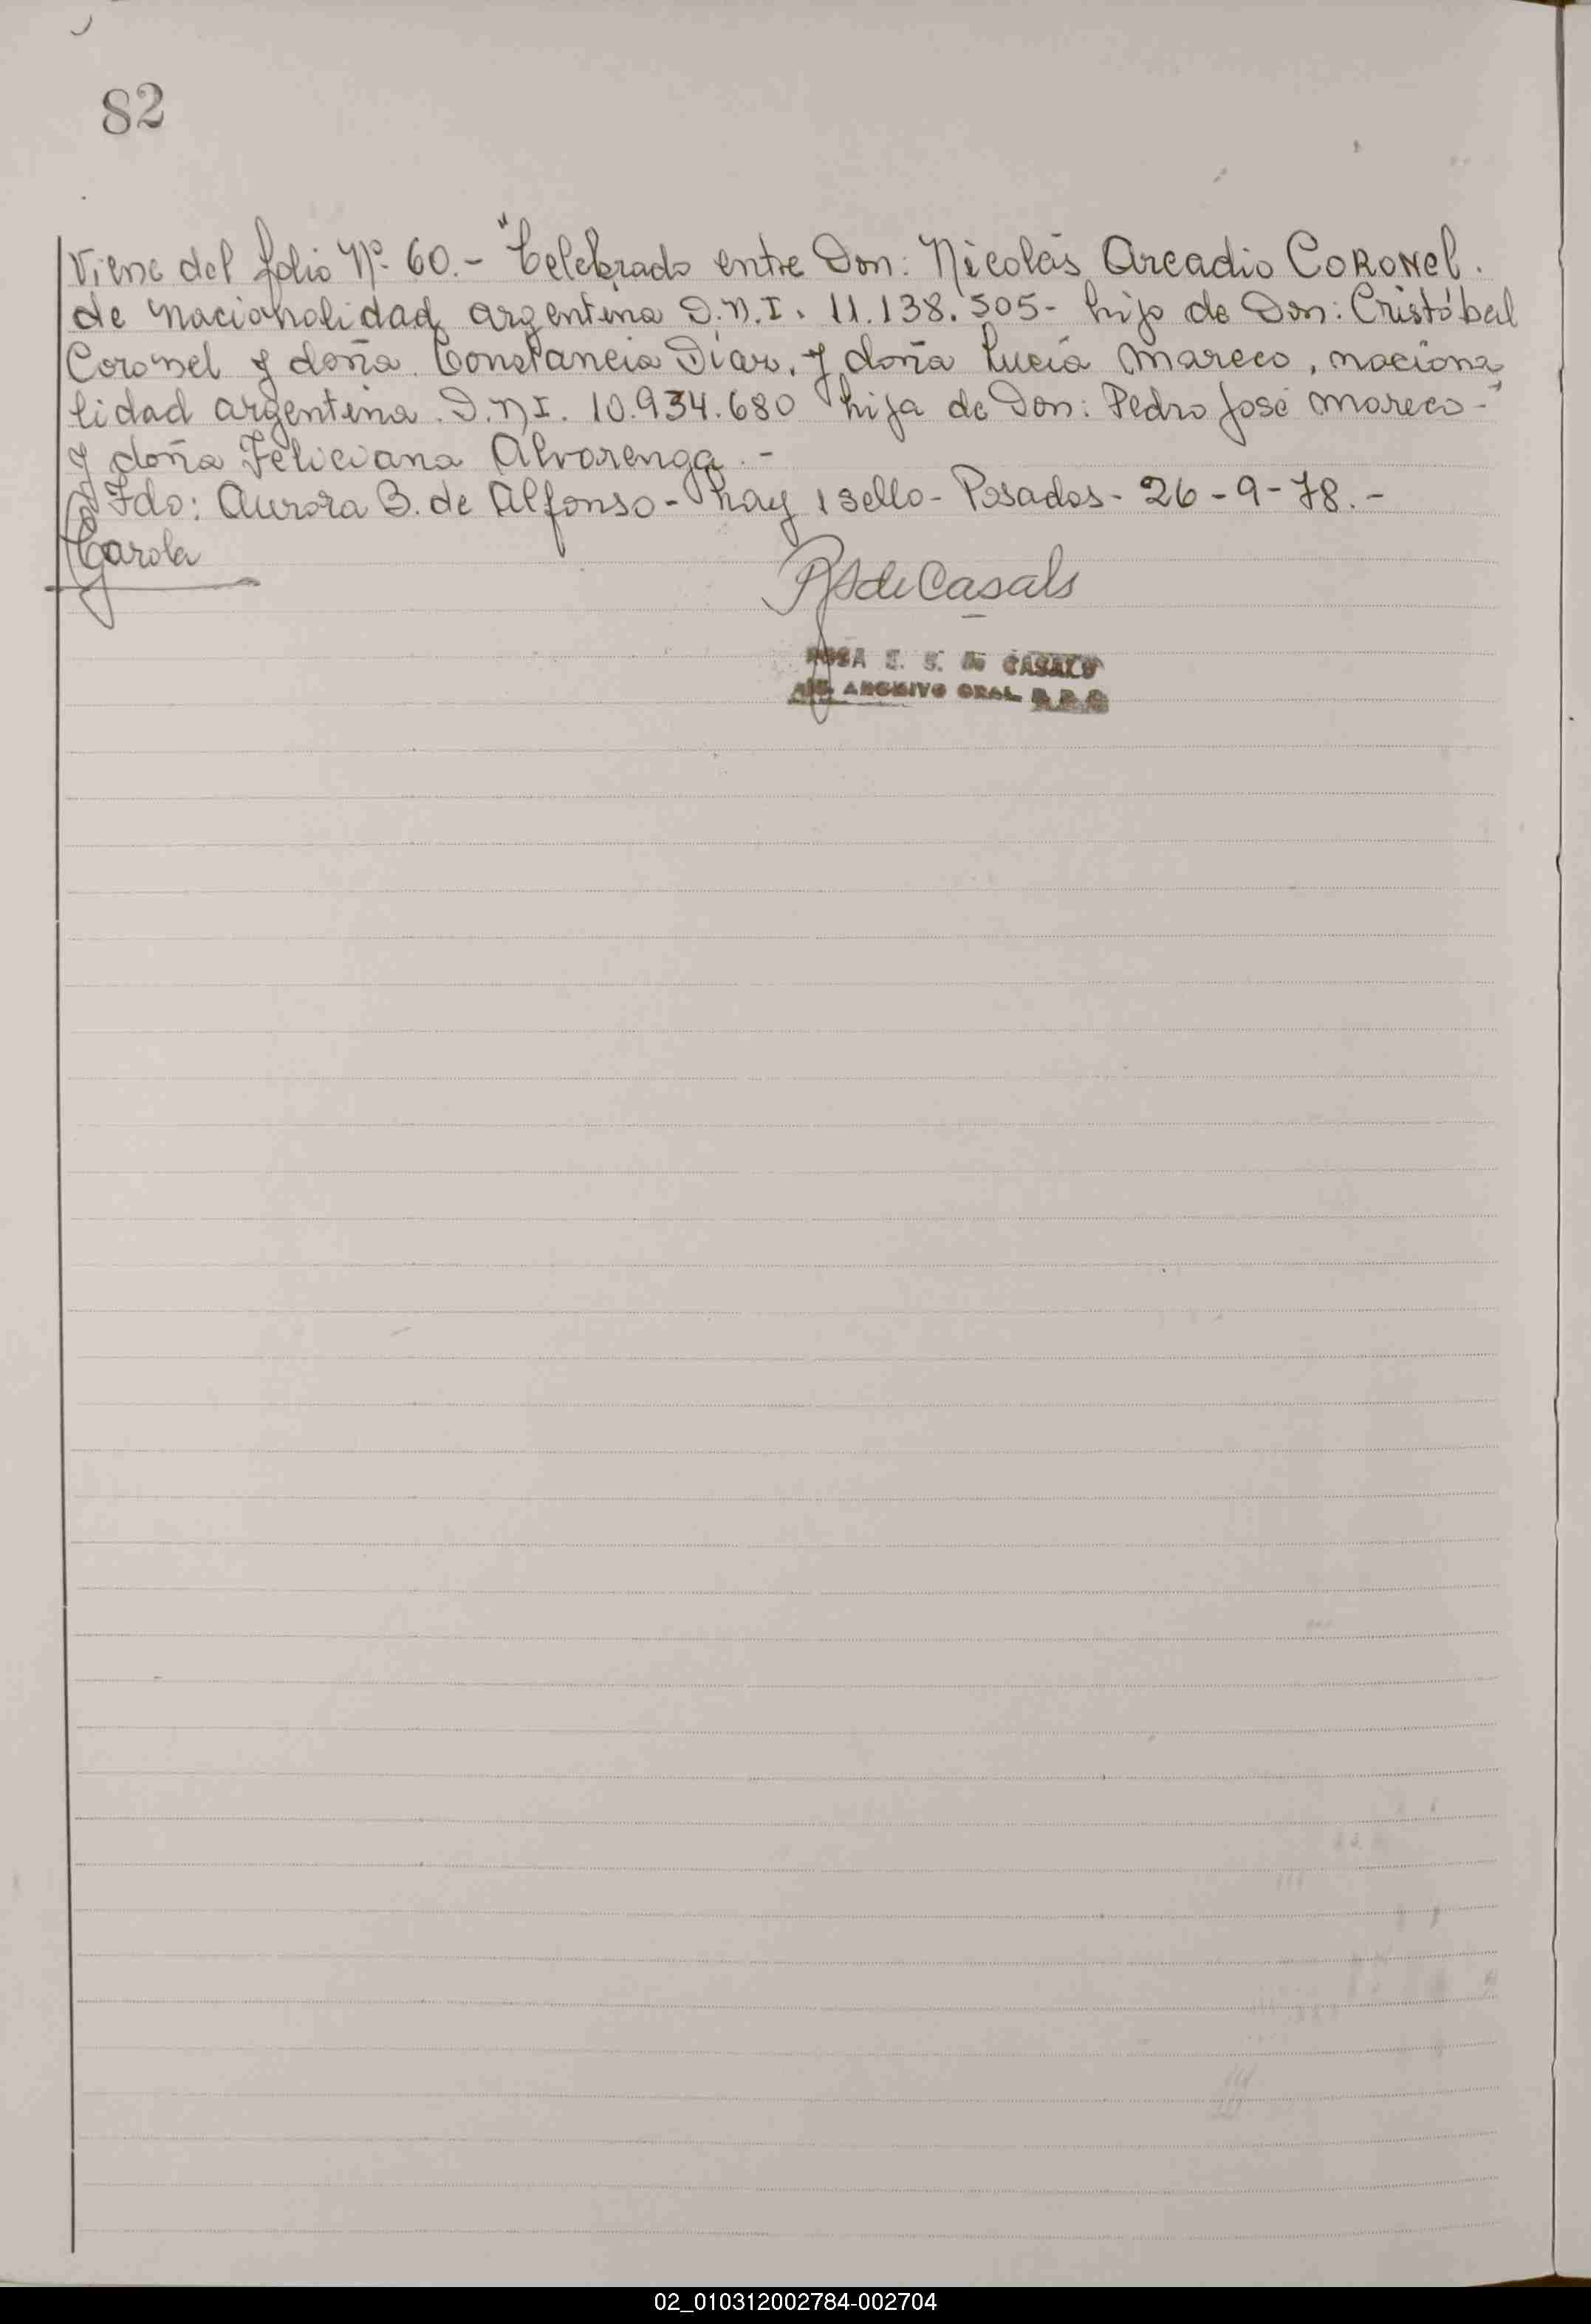 82
Viene del folio Nº 60.- "Celebrado entre Don: Nicolás Arcadio CORONel.
de nacionalidad argentina D.N.I. 11.138.505- hijo de Don: Cristóbal
Coronel y doña Constancia Díaz, y doña Lucía Mareco, naciona
lidad argentina. D.N.I. 10.934.680 hija de Don: Pedro José Mareco-"
y doña Feliciana Alvarenga.-
Fdo: Aurora B. de Alfonso- hay 1 sello- Posadas- 26-9-78.-
Carola
de Casals
ROSA E. S. de CASALS
ARCHIVO GRAL
02_010312002784-002704